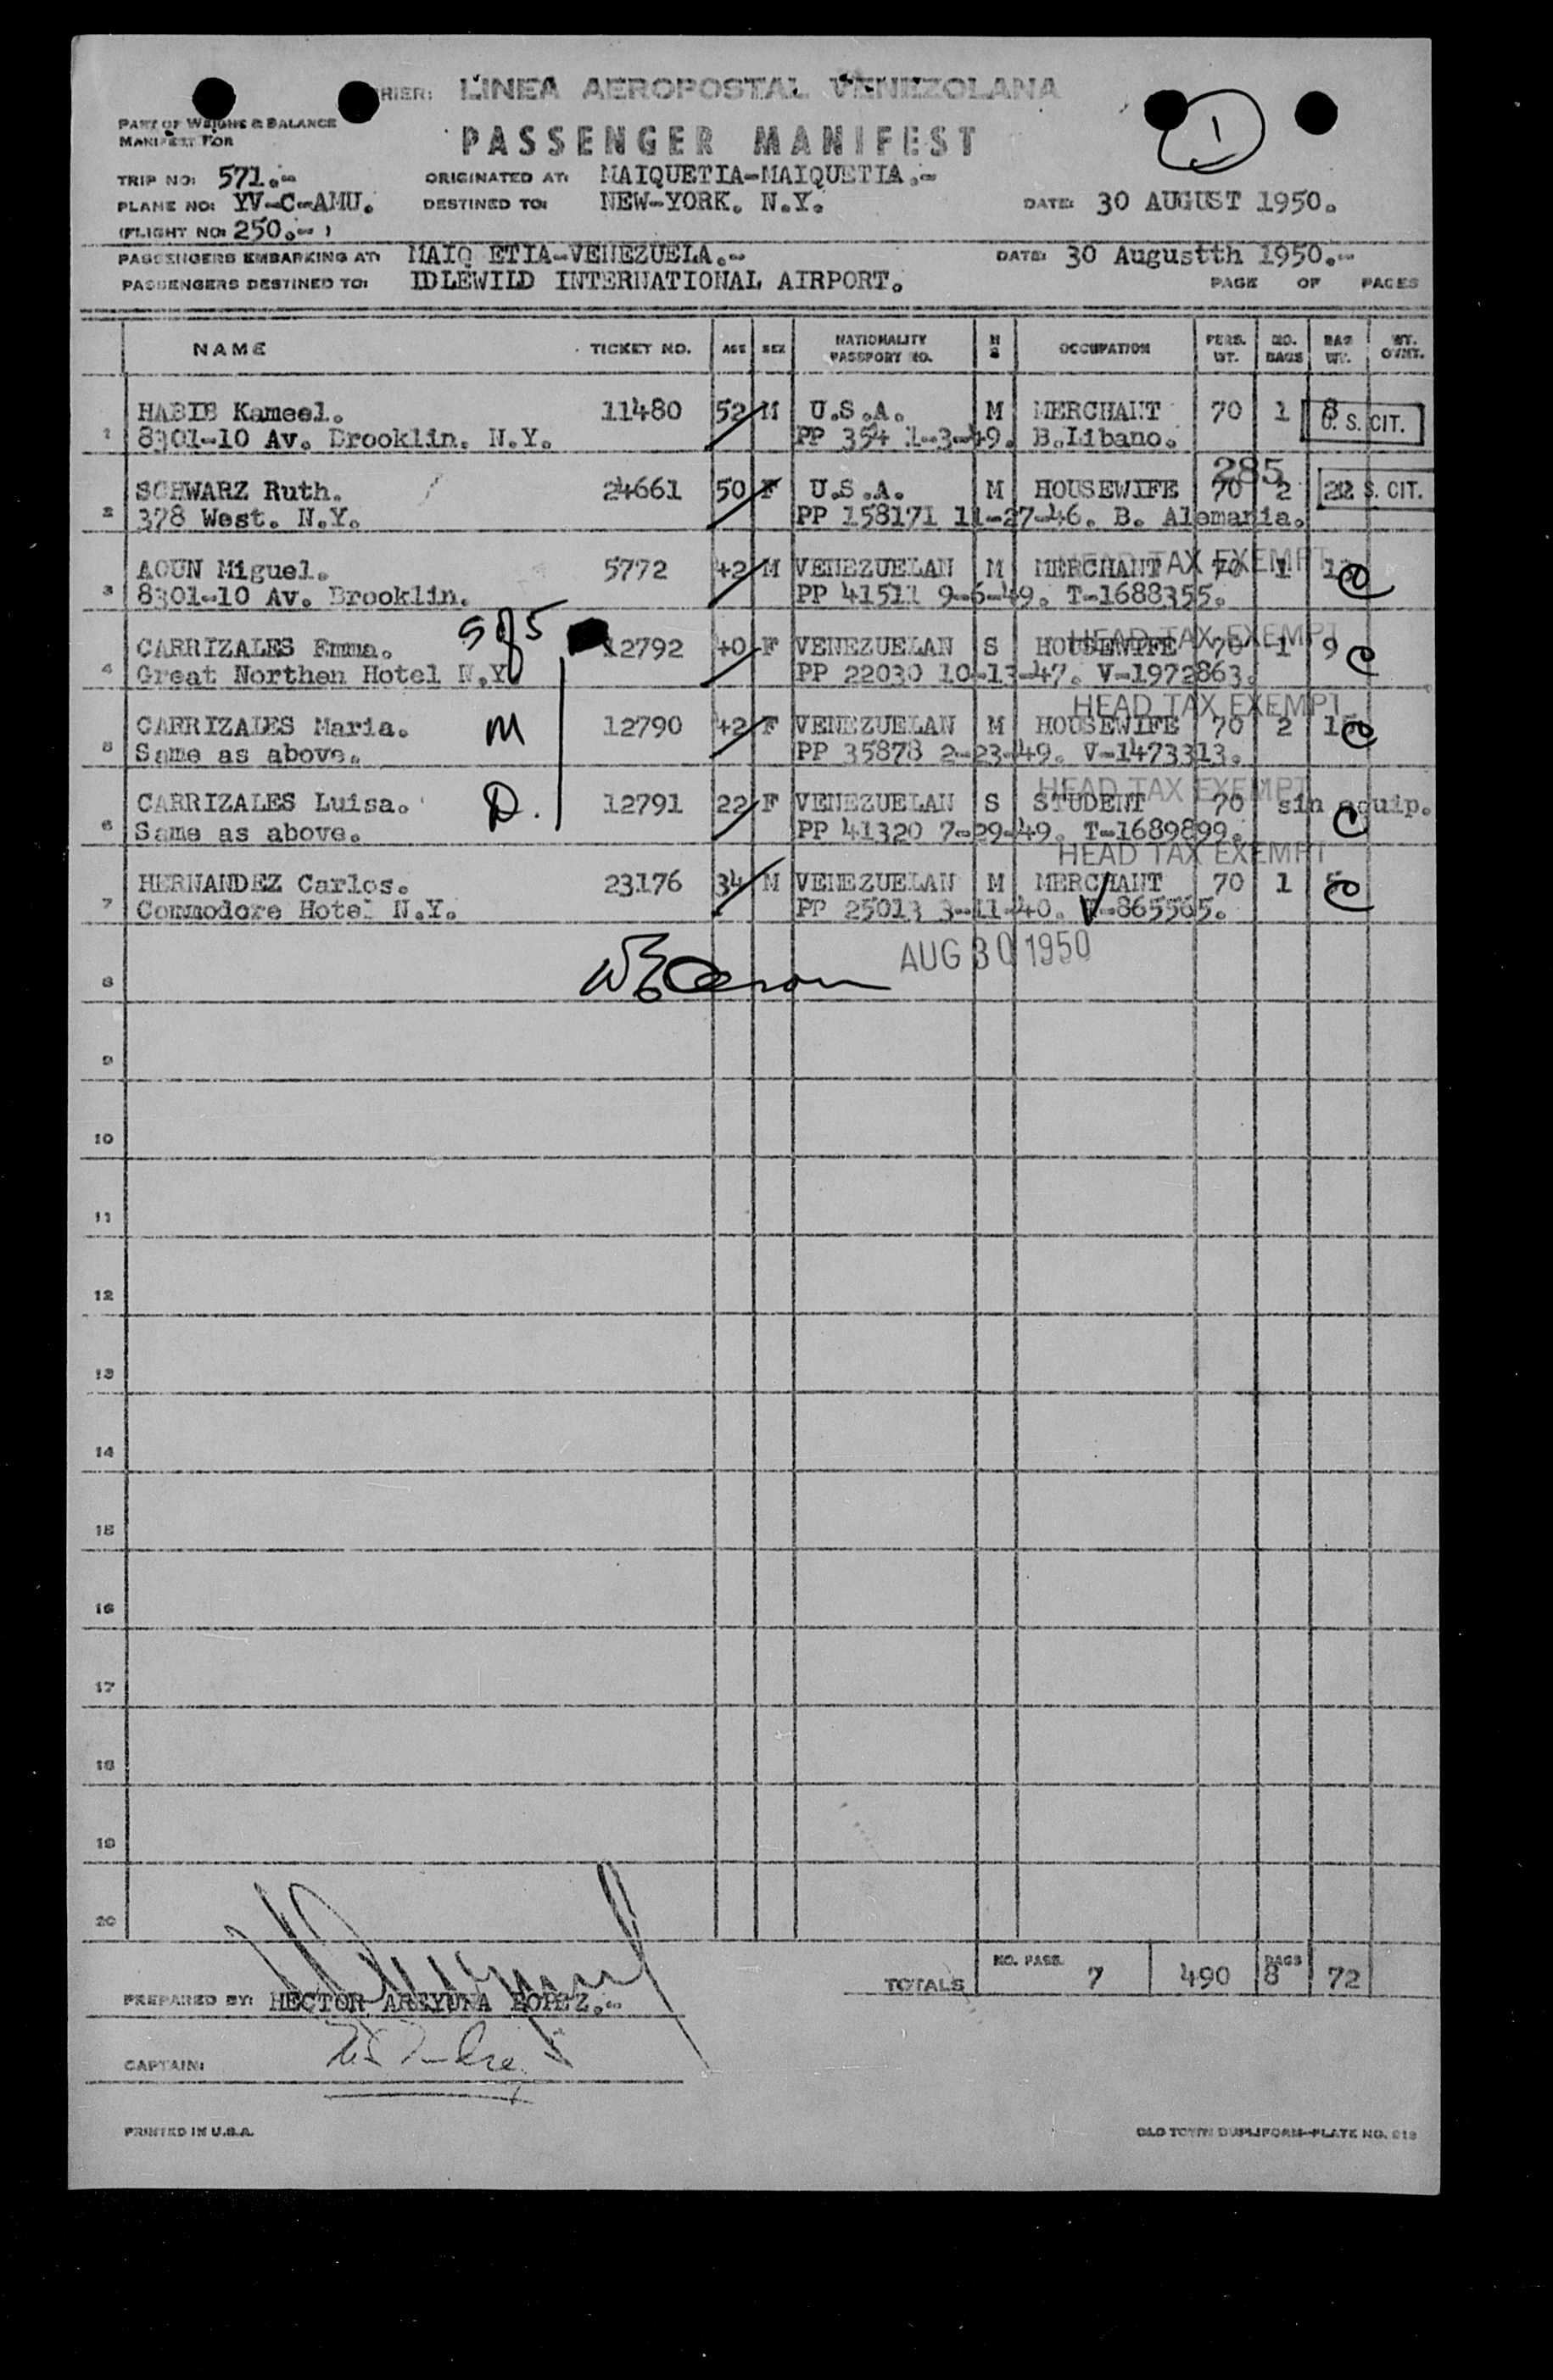 RIER: LINEA AEROPOSTAL VENEZOLANA
PART OF WEIGHT & BALANCE
MANIFEST FOR
PASSENGER MANIFEST
1
TRIP NO: 571.-
ORIGINATED AT: MAIQUETIA-MAIQUETIA.-
PLANE NO: YV-C-AMU.
DESTINED TO: NEW-YORK. N.Y.
DATE: 30 AUGUST 1950.
(FLIGHT NO: 250.- )
PASSENGERS EMBARKING AT: MAIQ ETIA-VENEZUELA.-
DATE: 30 Augustth 1950.-
PASSENGERS DESTINED TO: IDLEWILD INTERNATIONAL AIRPORT.
PAGE OF PAGES
NAME TICKET NO. AGE SEX NATIONALITY PASSPORT NO. M S OCCUPATION PERS. WT. NO. BAGS BAG WT. WT. OVHT.
HABIB Kameel. 11480 52 M U.S.A. M MERCHANT 70 1 8
1 8301-10 Av. Brooklin. N.Y. PP 354 1-3-49. B.Libano. U. S. CIT.
285
SCHWARZ Ruth. 24661 50 F U.S.A. M HOUSEWIFE 70 2 S. CIT.
2 378 West. N.Y. PP 158171 11-27-46. B. Alemania.
HEAD TAX EXEMPT
AOUN Miguel. 5772 42 M VENEZUELAN M MERCHANT 70 1
3 8301-10 Av. Brooklin. PP 41511 9-6-49. T-1688355.
5 of 5
HEAD TAX EXEMPT
CARRIZALES Emma. 12792 40 F VENEZUELAN S HOUSEWIFE 70 1 9 C
4 Great Northen Hotel N.Y. PP 22030 10-13-47. V-1972863.
HEAD TAX EXEMPT
CARRIZALES Maria. M 12790 42 F VENEZUELAN M HOUSEWIFE 70 2
5 Same as above. PP 35878 2-23-49. V-1473313.
HEAD TAX EXEMPT
CARRIZALES Luisa. D. 12791 22 F VENEZUELAN S STUDENT 70 sin equip. C
6 Same as above. PP 41320 7-29-49. T-1689899.
HEAD TAX EXEMPT
HERNANDEZ Carlos. 23176 34 M VENEZUELAN M MERCHANT 70 1
7 Commodore Hotel N.Y. PP 25013 3-11-40. V-865565.
AUG 30 1950
8
9
10
11
12
13
14
15
16
17
18
19
20
TOTALS NO. PASS. 7 490 BAGS 8 72
PREPARED BY: HECTOR AREYUNA LOPEZ.-
CAPTAIN:
PRINTED IN U.S.A.
OLD TOWN DUPLIFORM—PLATE NO.